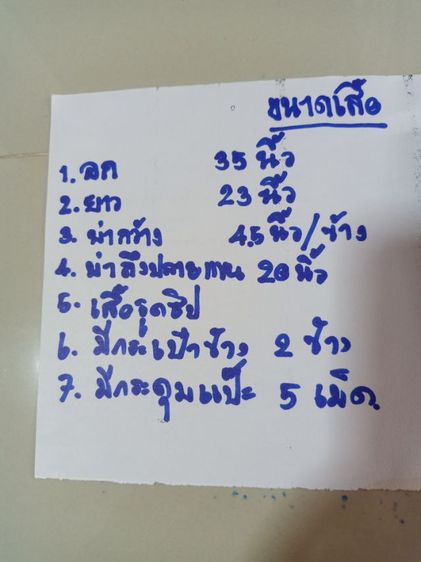 ขนาดเสื้อ
1. อก 35 นิ้ว
2. ยาว 23 นิ้ว
3. บ่ากว้าง 4.5 นิ้ว/ข้าง
4. บ่าถึงปลายแขน 20 นิ้ว
5. เสื้อรูดซิป
6. มีกระเป๋าข้าง 2 ข้าง
7. มีกระดุมแป๊ะ 5 เม็ด